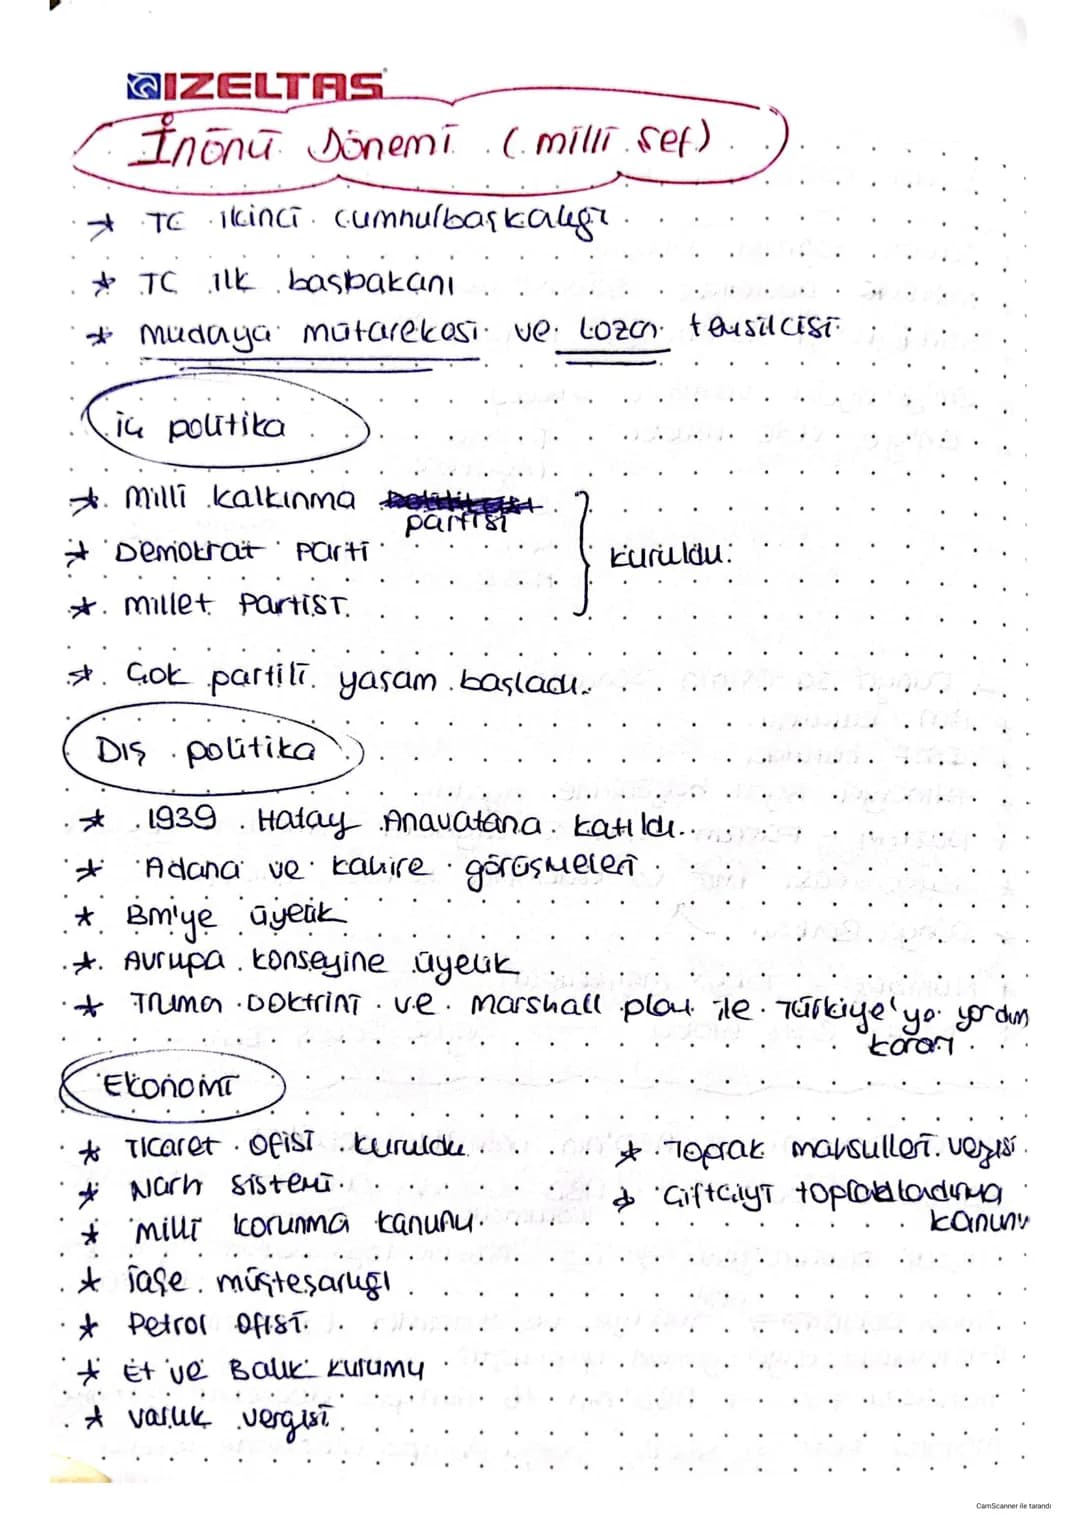 IZELTAS
İnönü Dönemi (milli şef)
→ TC ikinci cumhulbaşkalığı
* TC ilk başbakanı
* Mudaya mütarekesi ve Lozan temsilcisi
iç politika
* Milli kalkınma partisi
* Demokrat Parti
* millet Partisi
kuruldu.
* Çok partili yaşam başladı.
Dış politika
* 1939 Hatay Anavatana katıldı.
* Adana ve kahire görüşmeleri
* Bm'ye üyelik
* Avrupa konseyine üyelik
* Truman Doktrini ve Marshall planı ile Türkiye'ye yardım
kararı
Ekonomi
* Ticaret Ofisi kuruldu.
* Narh sistemi.
* milli korunma kanunu.
* iaşe müşteşarlığı
* Petrol Ofisi
* Et ve Balık kurumu
* varlık vergisi
* Toprak mahsulleri vergisi
* Çiftçiyi topraklandırma
kanunu
CamScanner ile tarandı